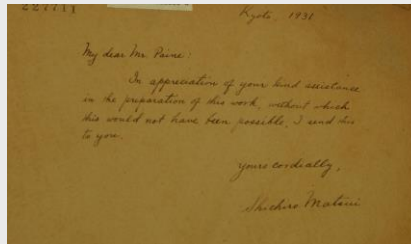 227711
Kyoto, 1931
My dear Mr. Paine:
In appreciation of your kind assistance
in the preparation of this work, without which
this would not have been possible, I send this
to you.
Yours cordially,
Shichiro Matsui